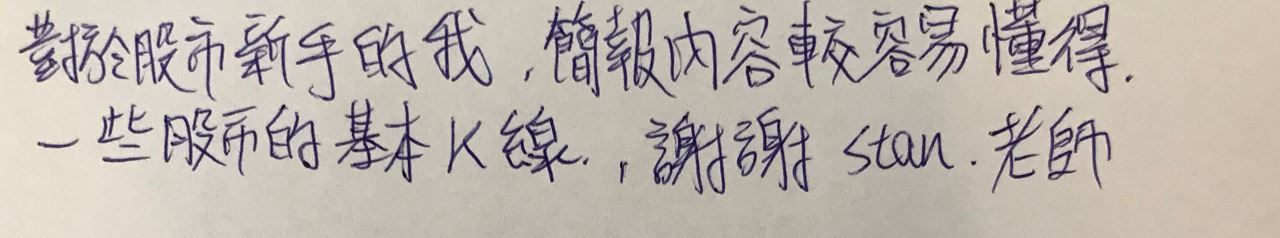 對於股市新手的我，簡報內容較容易懂得.
一些股市的基本K線.，謝謝 stan. 老師